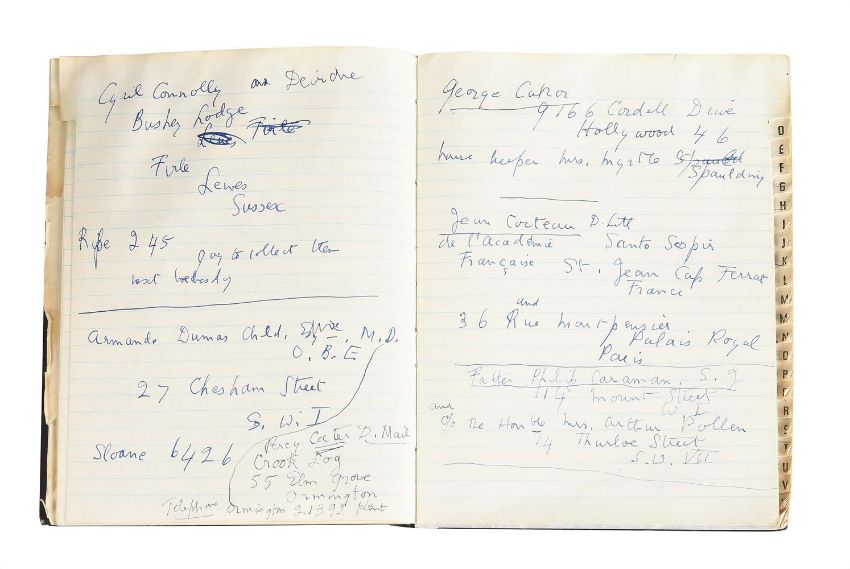 Cyril Connolly and Deirdre
Bushey Lodge
Lewes Firle
Firle
Lewes
Sussex
Ripe 245
going to collect them
next Wednesday
Armande Dumas Child, M.D.
O. B. E
27 Chesham Street
S. W. I
Sloane 6426
Percy Cater D. Mail
Crook Log
55 Elm Grove
Ormington
Telephone Ormington 21392 Kent
George Cukor
9166 Cordell Drive
Hollywood 46
house keeper Mrs. Myrtle Spauld
Spaulding
Jean Cocteau D. Litt
de l'Académie Santo Sospir
Française St. Jean Cap Ferrat
France
and
36 Rue Montpensier
Palais Royal
Paris
Father Philip Caraman. S. J
114 Mount Street
W I
and
c/o The Honble Mrs. Arthur Pollen
74 Thurloe Street
S. W. VII
D
E
F
G
H
I
J
K
L
M
N
O
P
R
S
T
U
V